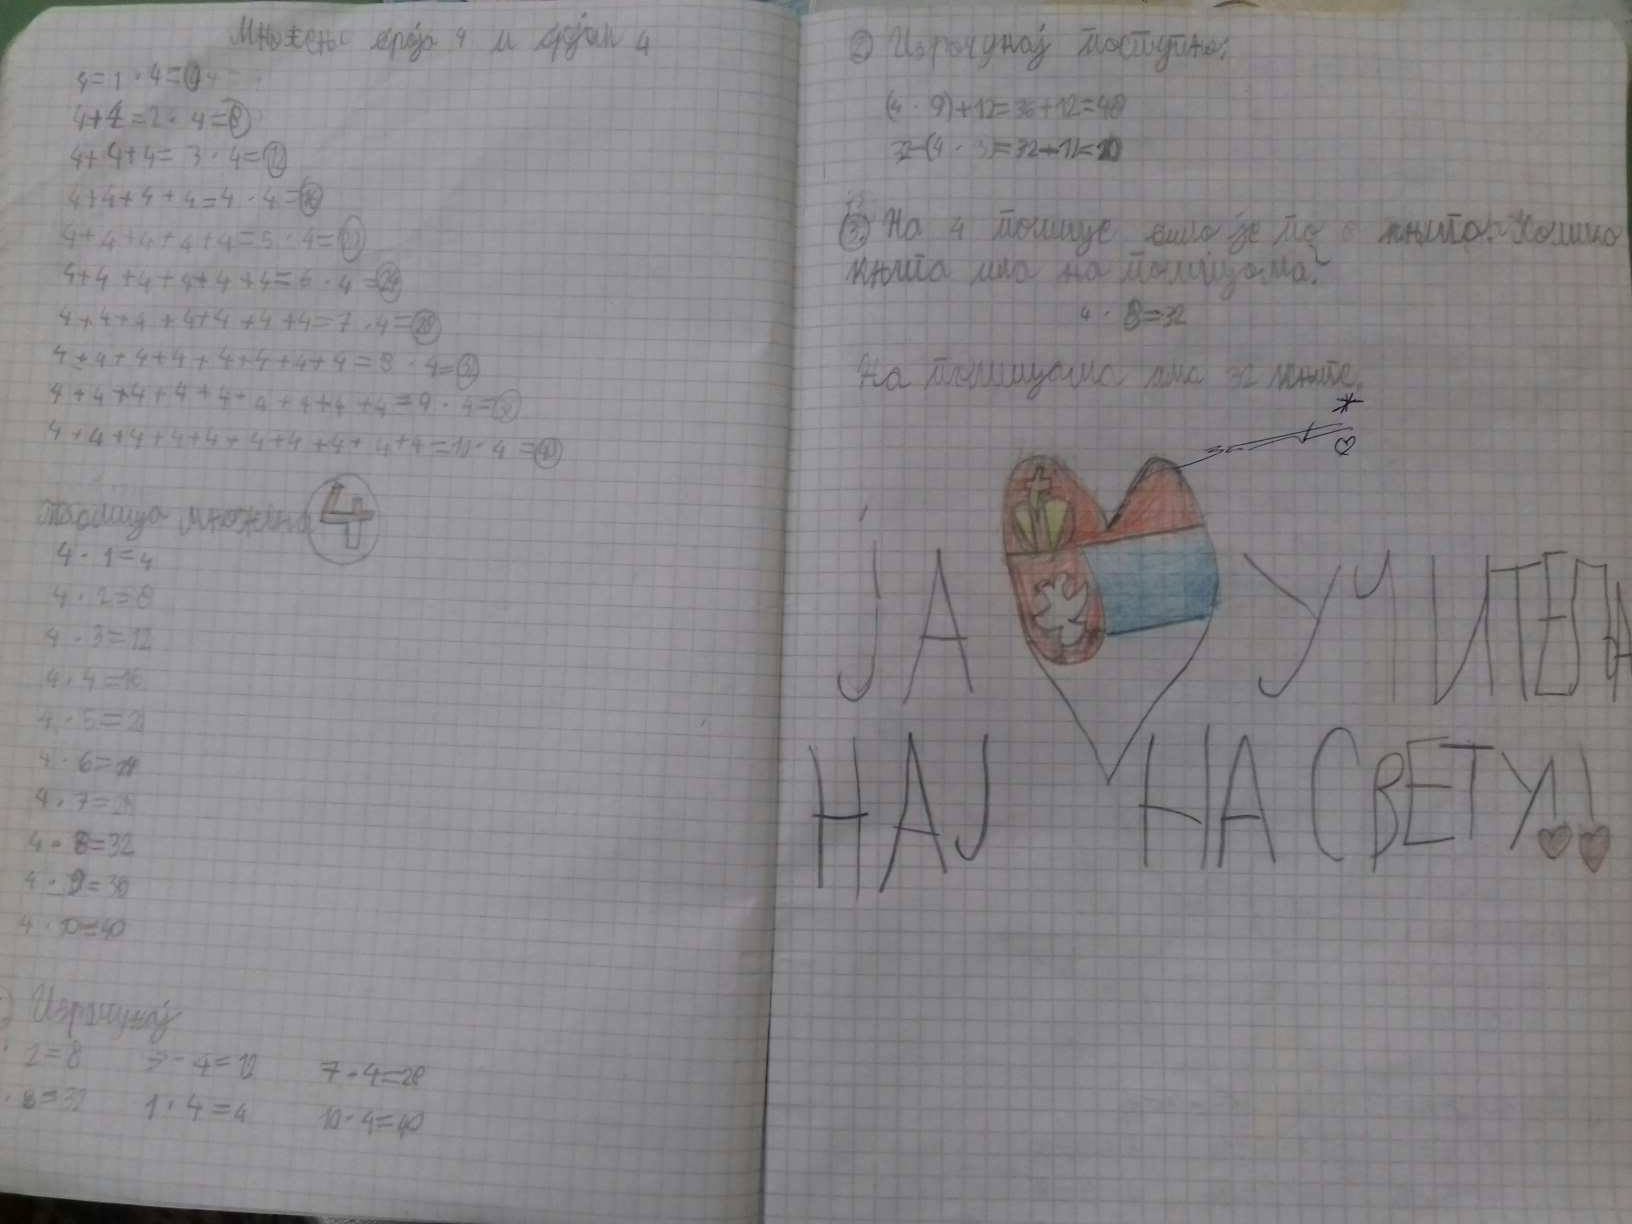 Множење броја 4 и бројем 4
4=1·4=4
4+4=2·4=8
4+4+4=3·4=12
4+4+4+4=4·4=16
4+4+4+4+4=5·4=20
4+4+4+4+4+4=6·4=24
4+4+4+4+4+4+4=7·4=28
4+4+4+4+4+4+4+4=8·4=32
4+4+4+4+4+4+4+4+4=9·4=36
4+4+4+4+4+4+4+4+4+4=10·4=40
Таблица множења 4
4·1=4
4·2=8
4·3=12
4·4=16
4·5=20
4·6=24
4·7=28
4·8=32
4·9=36
4·10=40
Израчунај
2=8 3·4=12 7·4=28
8=32 1·4=4 10·4=40
2) Израчунај поступно:
(4·9)+12=36+12=48
32-(4·3)=32-12=20
3. На 4 полице било је по 8 књига. Колико
књига има на полицама?
4·8=32
На полицама има 32 књиге.
ЈА УЧИТЕЉА
НАЈ НА СВЕТУ!!